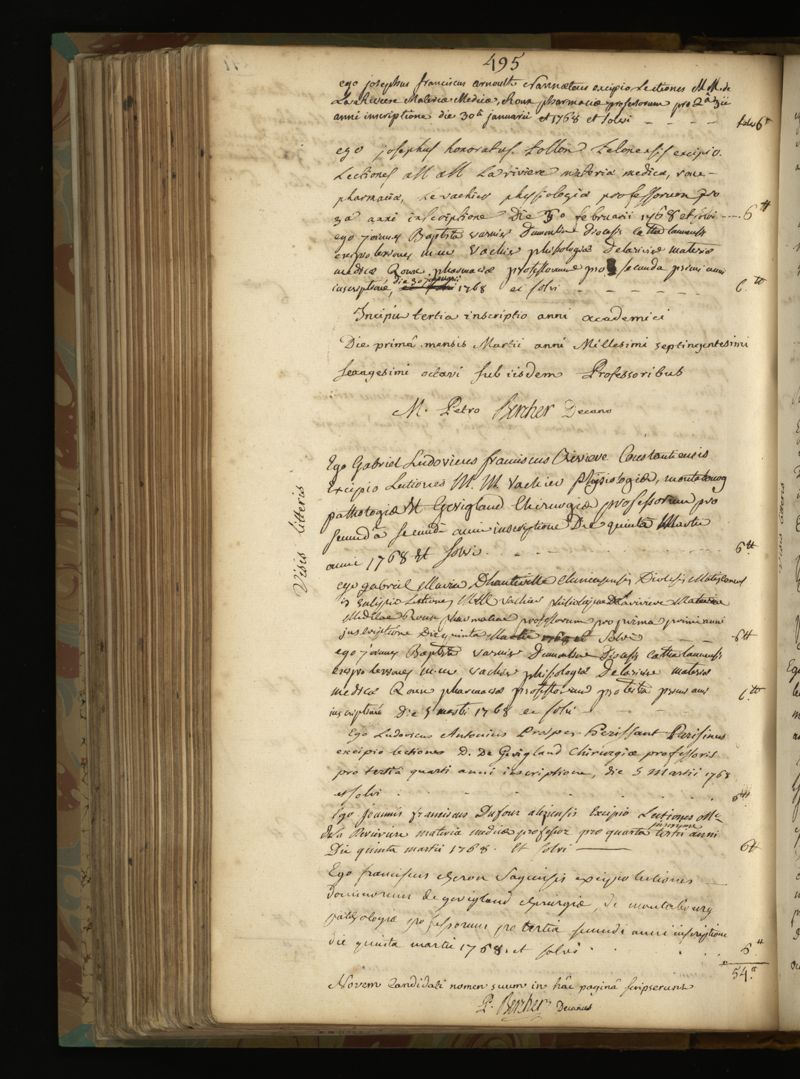 495
ego josephus franciscus arnoult Nannœteus excipio Lectiones M M. de
La Riviere Materiæ Medicæ, Roux pharmaciæ professorum pro 2â
anni inscriptione die 30â januarii et 1768 et solvi
6tt
ego josephus honoratus excipio
Lectiones M M Lariviere materia medica, roux
pharmacia, le vacher physiologia professorum pro
3a anni inscriptione Die februarii 1768 et solvi 6tt
ego joannes Baptista varnier diocesis
m.m. vacher phisiologiæ Delariviere materiæ
medicæ Roux pharmaciæ professorum pro secunda primi anni
inscriptione, 1768 et solvi 6tt
Incipit tertia inscriptio anni academici
Die primâ mensis Martii anni Millesimi septingentesimi
sexagesimi octavi sub iisdem Professoribus
M. Petro Bercher Decano
Visis litteris
Ego Gabriel Ludovicus franciscus Constantiensis
excipio Lectiones M. M. vacher physiologiæ,
pathologiæ et Gevigland Chirurgiæ professorum pro
secundâ secundi anni inscriptione Die quintâ Martii
anni 1768 et solvi 6tt
ego gabriel Maria diocesis
Lectiones M M vacher Delariviere Materiæ
Medicae Roux pharmaciae professorum pro prima primi anni
inscriptione Die quinta Martii 1768 et solvi 6tt
ego joannes Baptista varnier diocesis
m.m. vacher phisiologiæ Delariviere materiæ
medicæ Roux pharmaciæ professorum pro tertia primi anni
inscriptione die 5 martii 1768 et solvi 6tt
Ego Ludovicus Antonius Prosper herissant Parisinus
excipio lectiones D. De Gevigland chirurgiæ professoris
pro tertiâ quarti anni inscriptione, die 5 Martii 1768
et solvi 6tt
Ego joannis franciscus Dufour excipio Lectiones
materia medicæ professor pro quarta tertii anni inscriptione
Die quinta martii 1768. et solvi 6tt
Ego franciscus Sagiensis excipio lectiones
dominorum de gevigland chirurgiæ, de
pathologiæ professorum pro tertiâ secundi anni inscriptione
die quinta martii 1768. et solvi 6tt
54tt
Novem Candidati nomen suum in hâc paginâ scripserunt
P. Bercher Decanus